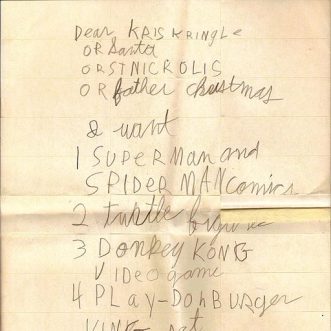 Dear KRIS KRINGLE
OR Santa
OR ST NICROLIS
OR father chustmas
I want
1 SUPERMan and
SPIDER MAN comics
2 turtle figures
3 Donkey KONG
VIDEO game
4 PLAY-DOH BURGER
KING set